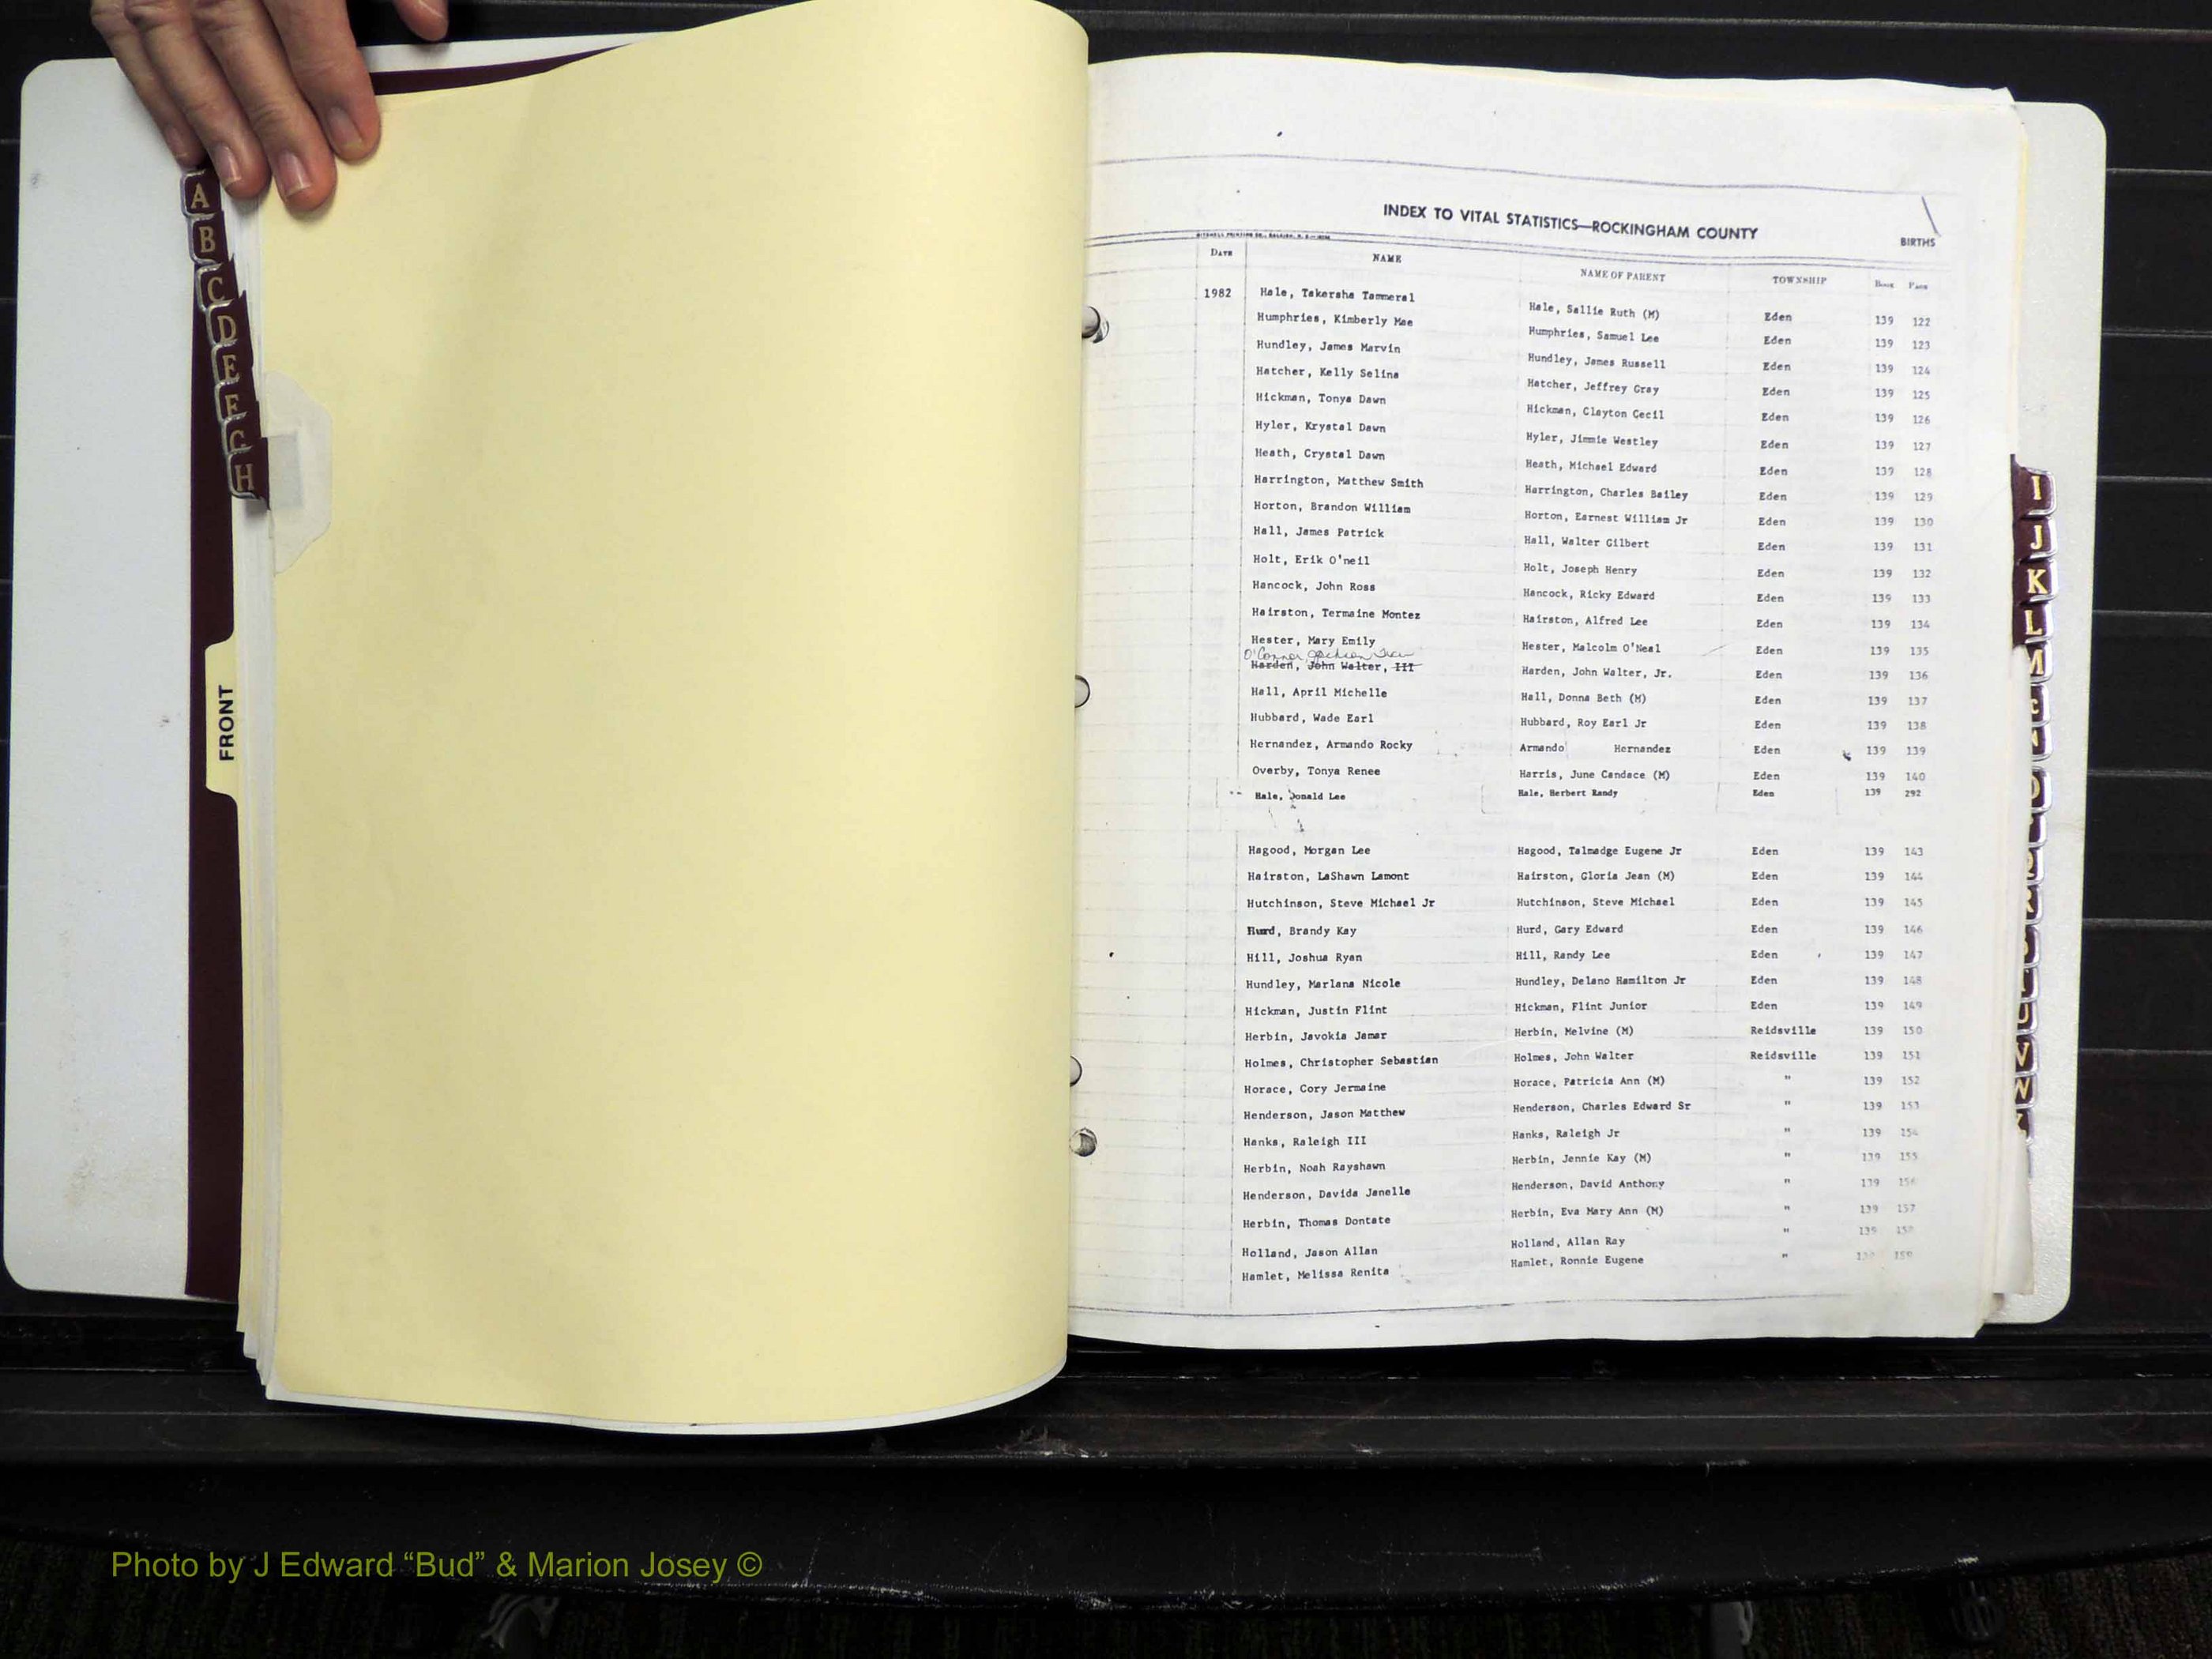 A
B
C
D
E
F
G
H
FRONT
INDEX TO VITAL STATISTICS—ROCKINGHAM COUNTY
BIRTHS
DATE NAME NAME OF PARENT TOWNSHIP BOOK PAGE
1982 Hale, Takersha Tammeral Hale, Sallie Ruth (M) Eden 139 122
Humphries, Kimberly Mae Humphries, Samuel Lee Eden 139 123
Hundley, James Marvin Hundley, James Russell Eden 139 124
Hatcher, Kelly Selina Hatcher, Jeffrey Gray Eden 139 125
Hickman, Tonya Dawn Hickman, Clayton Cecil Eden 139 126
Hyler, Krystal Dawn Hyler, Jimmie Westley Eden 139 127
Heath, Crystal Dawn Heath, Michael Edward Eden 139 128
Harrington, Matthew Smith Harrington, Charles Bailey Eden 139 129
Horton, Brandon William Horton, Earnest William Jr Eden 139 130
Hall, James Patrick Hall, Walter Gilbert Eden 139 131
Holt, Erik O'neil Holt, Joseph Henry Eden 139 132
Hancock, John Ross Hancock, Ricky Edward Eden 139 133
Hairston, Termaine Montez Hairston, Alfred Lee Eden 139 134
Hester, Mary Emily Hester, Malcolm O'Neal Eden 139 135
O'Connor, Jackson
Harden, John Walter, III Harden, John Walter, Jr. Eden 139 136
Hall, April Michelle Hall, Donna Beth (M) Eden 139 137
Hubbard, Wade Earl Hubbard, Roy Earl Jr Eden 139 138
Hernandez, Armando Rocky Armando Hernandez Eden 139 139
Overby, Tonya Renee Harris, June Candace (M) Eden 139 140
Hale, Donald Lee Hale, Herbert Randy Eden 139 292
Hagood, Morgan Lee Hagood, Talmadge Eugene Jr Eden 139 143
Hairston, LaShawn Lamont Hairston, Gloria Jean (M) Eden 139 144
Hutchinson, Steve Michael Jr Hutchinson, Steve Michael Eden 139 145
Hurd, Brandy Kay Hurd, Gary Edward Eden 139 146
Hill, Joshua Ryan Hill, Randy Lee Eden 139 147
Hundley, Marlana Nicole Hundley, Delano Hamilton Jr Eden 139 148
Hickman, Justin Flint Hickman, Flint Junior Eden 139 149
Herbin, Javokia Jamar Herbin, Melvine (M) Reidsville 139 150
Holmes, Christopher Sebastian Holmes, John Walter Reidsville 139 151
Horace, Cory Jermaine Horace, Patricia Ann (M) " 139 152
Henderson, Jason Matthew Henderson, Charles Edward Sr " 139 153
Hanks, Raleigh III Hanks, Raleigh Jr " 139 154
Herbin, Noah Rayshawn Herbin, Jennie Kay (M) " 139 155
Henderson, Davida Janelle Henderson, David Anthony " 139 156
Herbin, Thomas Dontate Herbin, Eva Mary Ann (M) " 139 157
Holland, Jason Allan Holland, Allan Ray " 139 158
Hamlet, Melissa Renita Hamlet, Ronnie Eugene " 139 159
I
J
K
L
M
V
W
Photo by J Edward “Bud” & Marion Josey ©